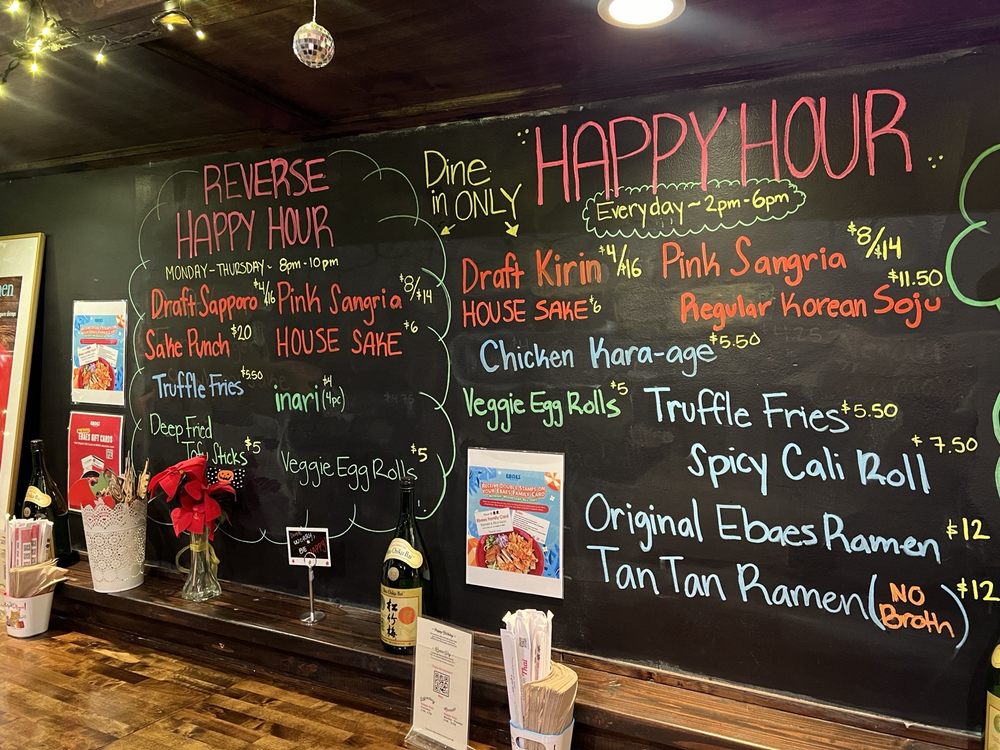 REVERSE
HAPPY HOUR
MONDAY-THURSDAY~ 8pm-10pm
Draft Sapporo $4/16 Pink Sangria $8/$14
Sake Punch $20 HOUSE SAKE $6
Truffle Fries $5.50 inari $4 (4pc)
Deep Fried
Tofu Sticks $5
Veggie Egg Rolls $5
Dine
in ONLY
HAPPY HOUR
Everyday ~ 2pm-6pm
Draft Kirin $4/16 Pink Sangria $8/$14
HOUSE SAKE $6 Regular Korean Soju $11.50
Chicken Kara-age $5.50
Veggie Egg Rolls $5 Truffle Fries $5.50
Spicy Cali Roll $7.50
Original Ebaes Ramen $12
TanTan Ramen (NO Broth) $12
EBAES GIFT CARDS
EBAES
RECEIVE DOUBLE STAMPS ON
YOUR EBAES FAMILY CARD
Ebaes Family Card
BE HAPPY
松竹梅
Thai